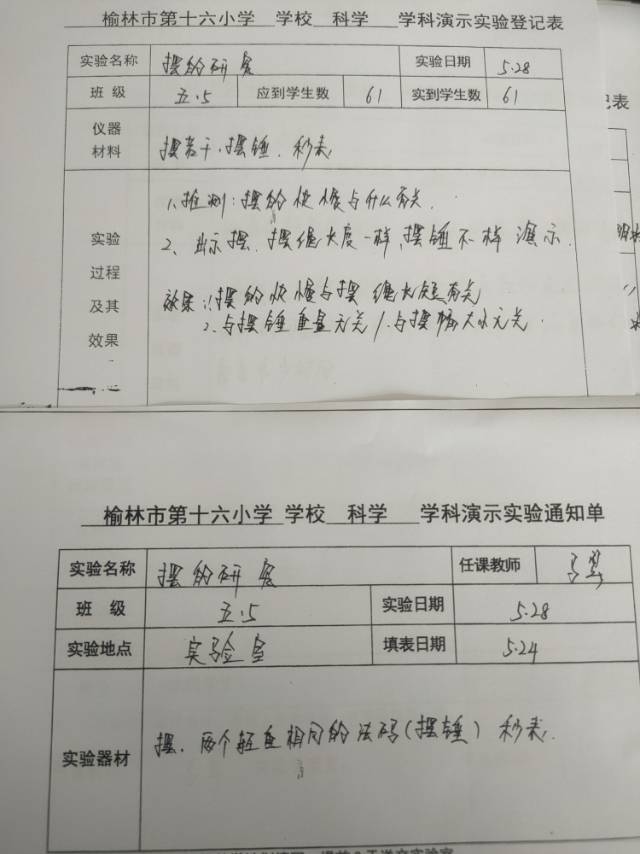 榆林市第十六小学 学校 科学 学科演示实验登记表
实验名称 摆的研究 实验日期 5.28
班 级 五.5 应到学生数 61 实到学生数 61
仪器材料 摆若干、摆锤、秒表
实验过程及其效果
1、推测：摆的快慢与什么有关.
2、出示摆、摆绳长度一样、摆锤不一样 演示.
效果：1、摆的快慢与摆绳长短有关
2、与摆锤重量无关/、与摆幅大小无关.
记表
榆林市第十六小学 学校 科学 学科演示实验通知单
实验名称 摆的研究 任课教师
班 级 五.5 实验日期 5.28
实验地点 实验室 填表日期 5.24
实验器材 摆、两个轻重相同的法码(摆锤) 秒表.